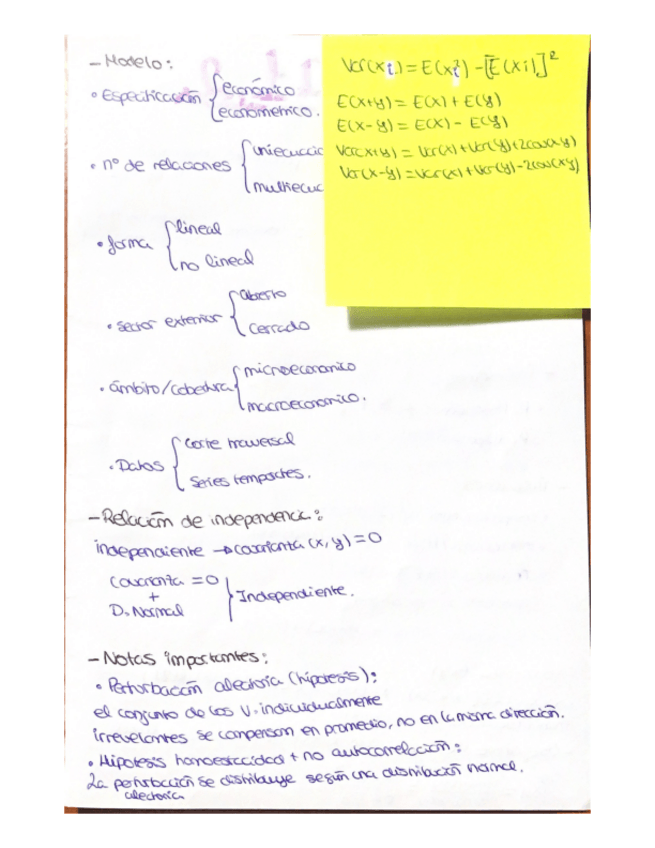 - Modelo:
• Especificación { económico
econometrico.
• nº de relaciones { uniecuacio
multiecuc
• forma { lineal
no lineal
• sector exterior { abierto
cerrado
• ámbito/cobertura { microeconomico
macroeconomico.
• Datos { corte traversal
series temporales.
Var(xi) = E(xi²) - [E(xi)]²
E(x+y) = E(x) + E(y)
E(x-y) = E(x) - E(y)
Var(x+y) = Var(x) + Var(y) + 2cov(xy)
Var(x-y) = Var(x) + Var(y) - 2cov(xy)
- Relación de independencia:
independiente → covarianza (x,y) = 0
covarianza = 0
+
D. Normal } Independiente.
- Notas importantes:
• Perturbación aleatoria (hipotesis):
el conjunto de las V. individualmente
irrevelantes se compensan en promedio, no en la misma dirección.
• Hipotesis + no autocorrelación:
La perturbación se distribuye según una distribución normal.
aleatoria